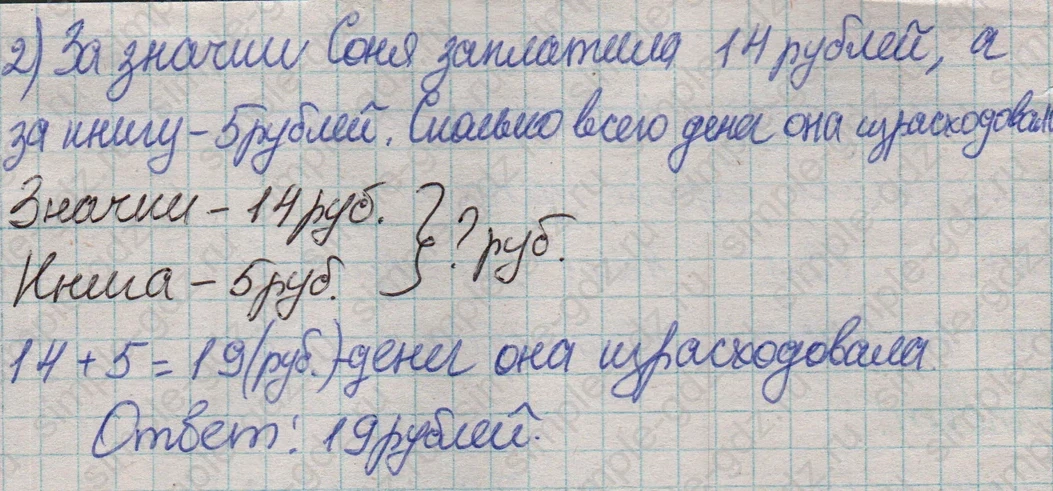 2) За значки Соня заплатила 14 рублей, а
за книгу - 5 рублей. Сколько всего денег она израсходовала
Значки - 14 руб. } ? руб.
Книга - 5 руб.
14 + 5 = 19 (руб.) - денег она израсходовала
Ответ: 19 рублей.
simple-gdz.ru